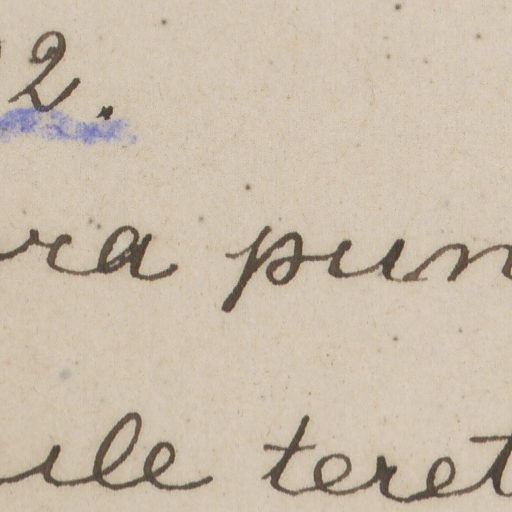 2.
ra pun
ile teret